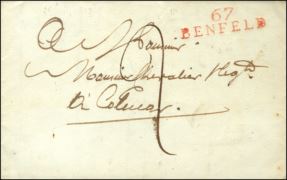 67
BENFELD
A Monsieur
Monsieur Chevalier Negt.
à Colmar.
2